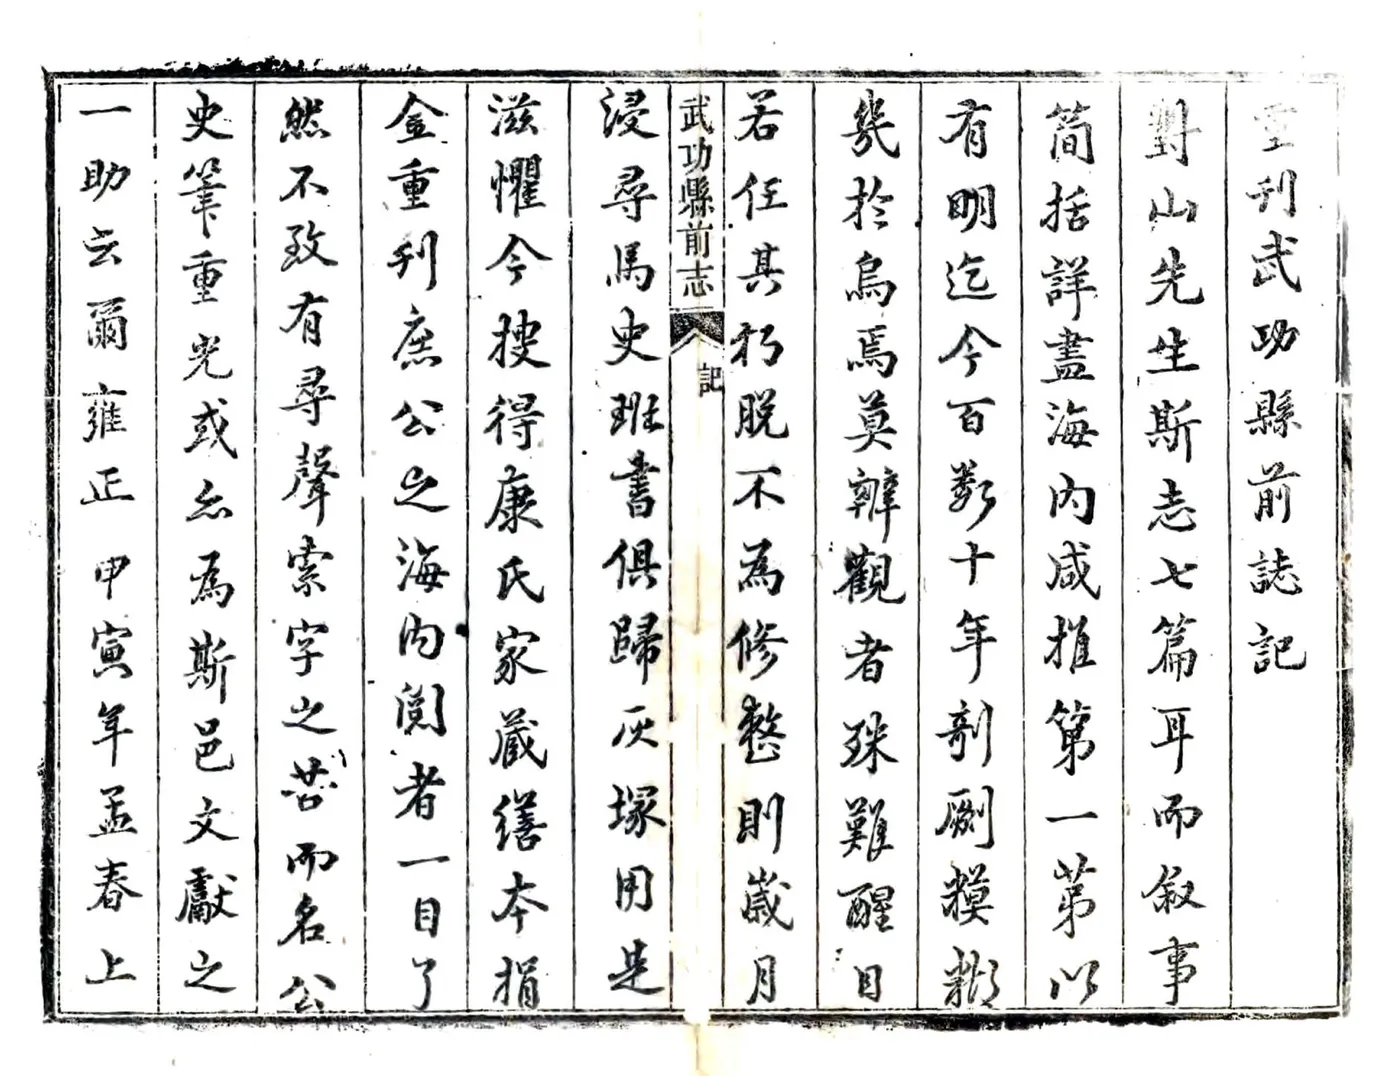 重刊武功縣前誌記
對山先生斯志七篇耳而叙事
簡括詳盡海内咸推第一第以
有明迄今百数十年剞劂糢糊
幾於烏焉莫辨觀者殊難醒目
若任其朽脱不為修整則嵗月
武功縣前志
記
浸尋馬史班書俱歸灰塚用是
滋懼今搜得康氏家蔵繕本捐
金重刊庶公之海内閲者一目了
然不致有尋聲索字之苦而名公
史筆重光或亦為斯邑文獻之
一助云爾雍正 甲寅年孟春上